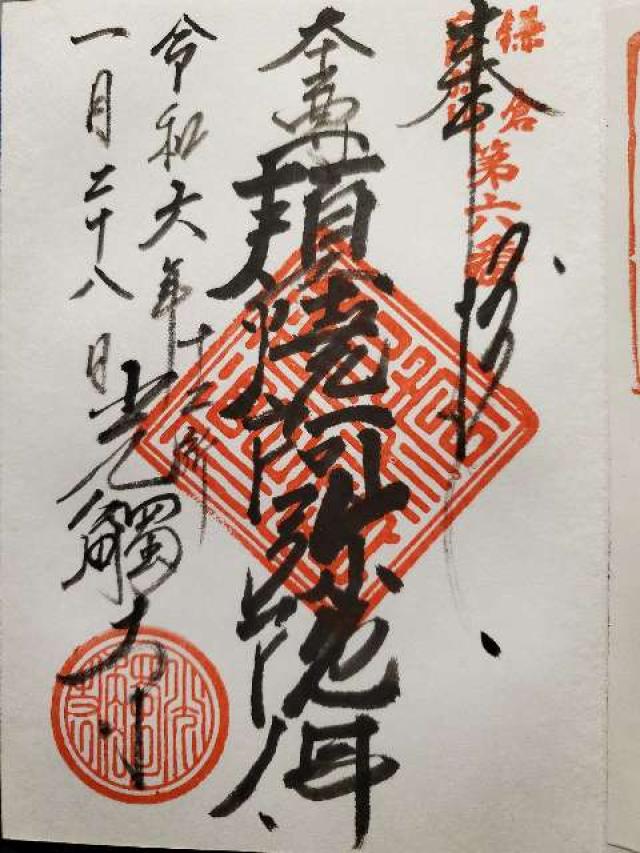 鎌倉
第六番
奉拝
本尊
頬焼阿弥陀佛
十二所
光觸寺
令和六年
一月二十八日